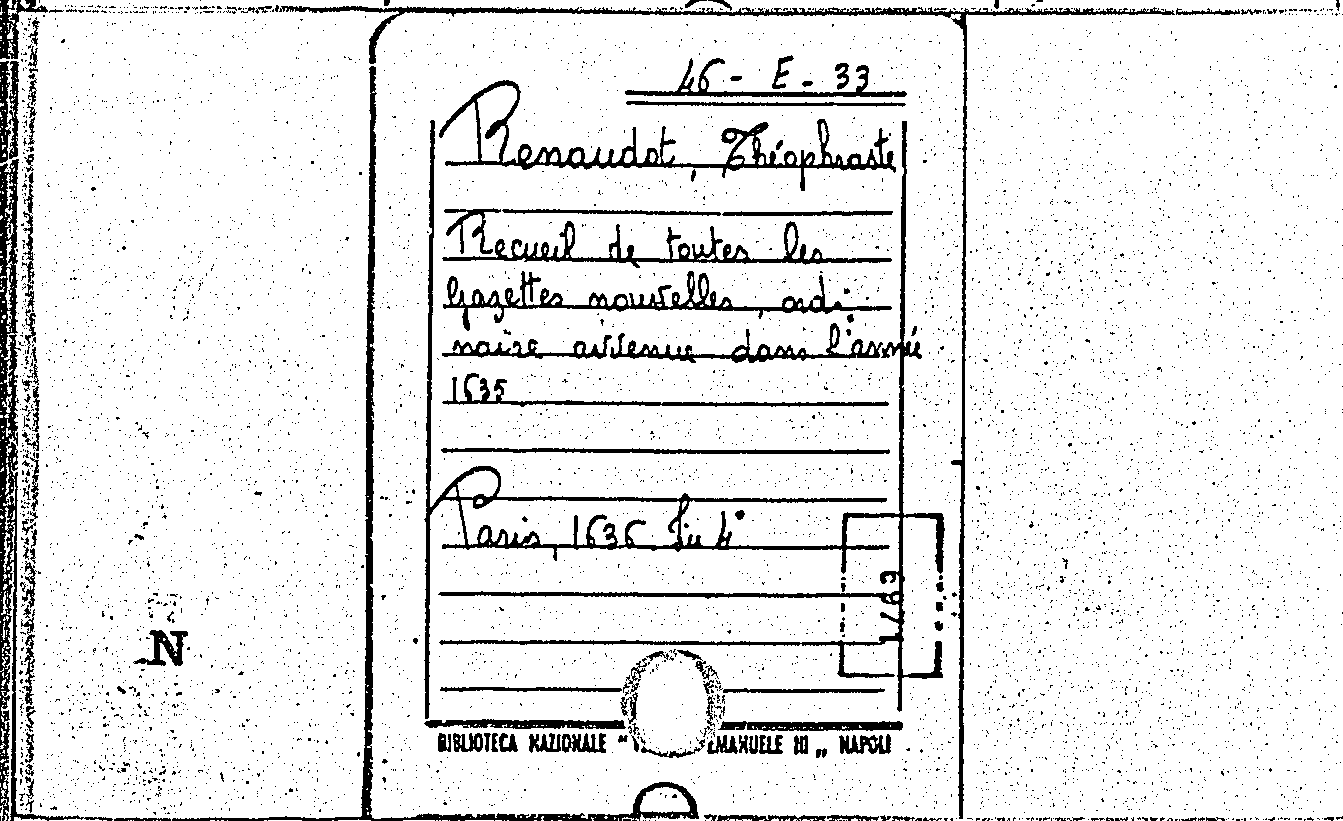 46 - E - 33
Renaudot, Théophraste
Recueil de toutes les
Gazettes nouvelles, ordi-
naire avvenue dans l'année
1635
Paris, 1636 in 4°
1769
N
BIBLIOTECA NAZIONALE " EMANUELE III „ NAPOLI